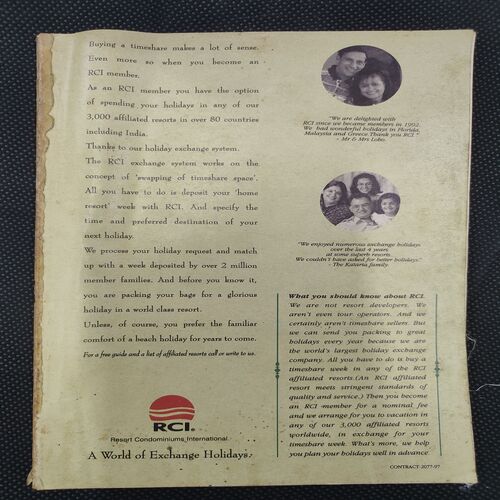 Buying a timeshare makes a lot of sense.
Even more so when you become an
RCI member.
As an RCI member you have the option
of spending your holidays in any of our
3,000 affiliated resorts in over 80 countries
including India.
Thanks to our holiday exchange system.
The RCI exchange system works on the
concept of 'swapping of timeshare space'.
All you have to do is deposit your 'home
resort' week with RCI. And specify the
time and preferred destination of your
next holiday.
We process your holiday request and match
up with a week deposited by over 2 million
member families. And before you know it,
you are packing your bags for a glorious
holiday in a world class resort.
Unless, of course, you prefer the familiar
comfort of a beach holiday for years to come.
For a free guide and a list of affiliated resorts call or write to us.
RCI.
Resort Condominiums International
A World of Exchange Holidays.
"We are delighted with
RCI since we became members in 1992.
We had wonderful holidays in Florida,
Malaysia and Greece.Thank you RCI "
- Mr & Mrs Lobo.
"We enjoyed numerous exchange holidays
over the last 4 years
at some superb resorts.
We couldn't have asked for better holidays."
- The Kataria family.
What you should know about RCI.
We are not resort developers. We
aren't even tour operators. And we
certainly aren't timeshare sellers. But
we can send you packing to great
holidays every year because we are
the world's largest holiday exchange
company. All you have to do is buy a
timeshare week in any of the RCI
affiliated resorts.(An RCI affiliated
resort meets stringent standards of
quality and service.) Then you become
an RCI member for a nominal fee
and we arrange for you to vacation in
any of our 3,000 affiliated resorts
worldwide, in exchange for your
timeshare week. What's more, we help
you plan your holidays well in advance
CONTRACT-2077-97